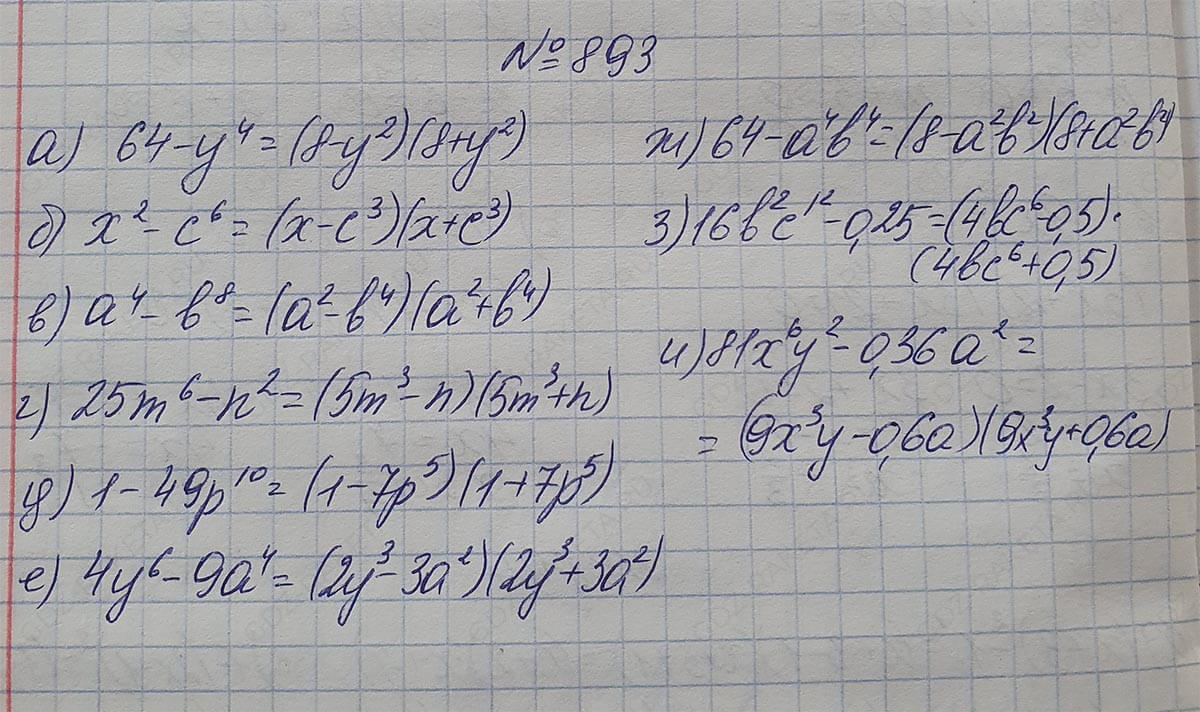 № 893
а) 64-y⁴=(8-y²)(8+y²)
б) x²-c⁶=(x-c³)(x+c³)
в) a⁴-b⁸=(a²-b⁴)(a²+b⁴)
г) 25m⁶-n²=(5m³-n)(5m³+n)
д) 1-49p¹⁰=(1-7p⁵)(1+7p⁵)
е) 4y⁶-9a⁴=(2y³-3a²)(2y³+3a²)
ж) 64-a⁴b⁴=(8-a²b²)(8+a²b²)
з) 16b²c¹²-0,25=(4bc⁶-0,5)·
(4bc⁶+0,5)
и) 81x⁶y²-0,36a²=
=(9x³y-0,6a)(9x³y+0,6a)